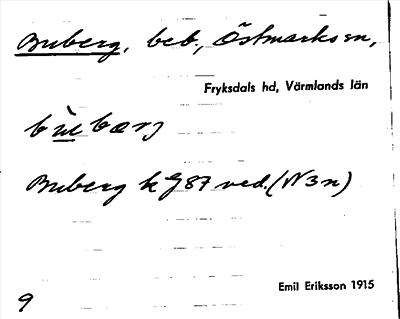 Buberg, beb., Östmarks sn,
Fryksdals hd, Värmlands län
Buberg k J 87 ved. (N 3 n)
Emil Eriksson 1915
9